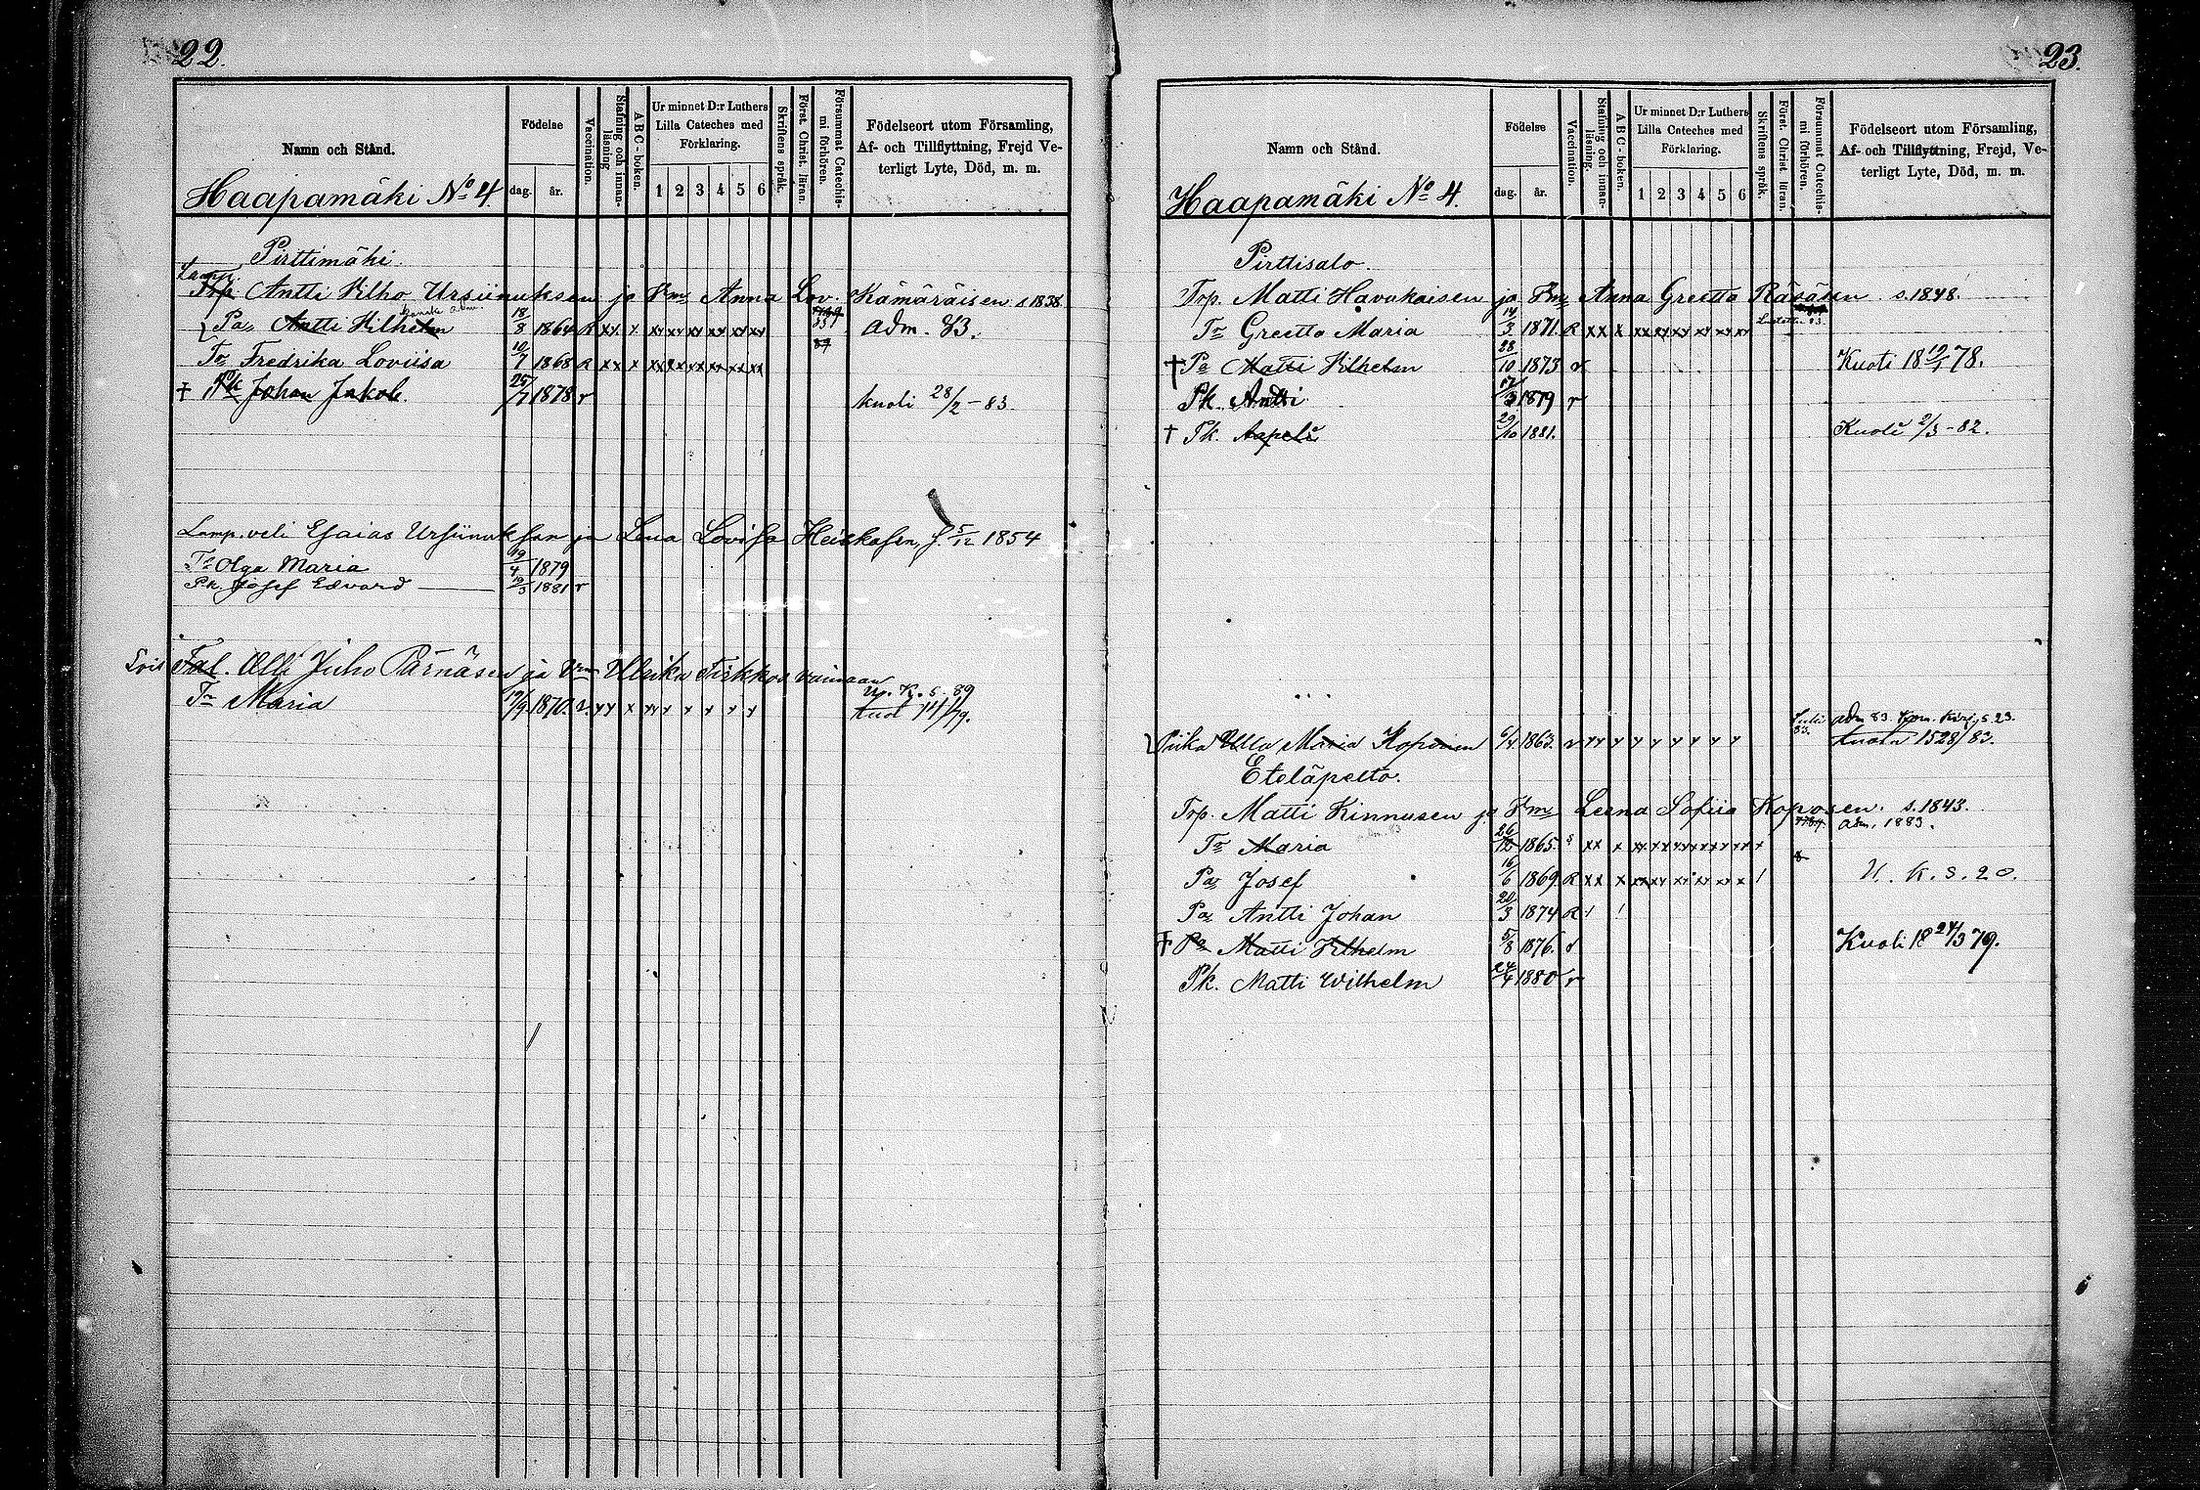 22.
Namn och Stånd.
Födelse
dag. år.
Vaccination.
Stafning och innanläsning
A B C-boken.
Ur minnet D:r Luthers Lilla Cateches med Förklaring.
1 2 3 4 5 6
Skriftens språk.
Först. Christ. läran.
Försummat Catechismi förhören.
Födelseort utom Församling, Af- och Tillflyttning, Frejd Veterligt Lyte, Död, m. m.
Haapamäki No 4
Pirttimäki.
Lamp. Trp. Antti Vilho Ursinuksen ja Vm Anna Lov. Kämäräisen s 1838.
Pa Antti Vilhelm 18/8 1864 R xx x xx xx xx xx xx xx adm. 83.
Tr Fredrika Loviisa 10/7 1868 R xx x xx x xx xx xx xx
† Pk Johan Jakob. 25/7 1878 r kuoli 28/2 - 83.
Lamp. veli Esaias Ursiinuksen ja Lena Lovisa Heiskasen, s. 5/12 1854
Tr Olga Maria 19/4 1879
Pk Josef Edvard 1881 r
Lois Tal. Olli Juho Pärnäsen ja Vm Ulrika Tirkkos vainaan
Up. K. s. 89
Tr Maria 19/9 1870.
23.
Namn och Stånd.
Födelse
dag. år.
Vaccination.
Stafning och innanläsning.
A B C-boken.
Ur minnet D:r Luthers Lilla Cateches med Förklaring.
1 2 3 4 5 6
Skriftens språk.
Först. Christ. läran.
Försummat Catechismi förhören.
Födelseort utom Församling, Af- och Tillflyttning, Frejd, Veterligt Lyte, Död, m. m.
Haapamäki No 4.
Pirttisalo.
Trp. Matti Havukaisen ja Vm Anna Greetta Räsäsen s. 1848.
Tr Greetta Maria 14/3 1871. R xx x xx xx xx xx xx xx
† Pa Matti Vilhelm 28/10 1873 r Kuoli 18 19/1 78.
Pk. Antti 1879 r
† Pk. Aapeli 29/10 1881. Kuoli 2/3 - 82.
adm 83. Kom. kirj. s. 23.
Piika Ulla Maria Koponen 6/4 1863. Kuoln 1528/83.
Eteläpelto.
Trp. Matti Kinnusen ja Vm Leena Sofiia Koposen. s. 1843.
adm. 1883.
Tr Maria 1865. xx x
Pa Josef 16/6 1869 R xx x xx xx xx xx xx x / U. K. S. 20.
Pa Antti Johan 20/3 1874 R / /
† Pa Matti Vilhelm 5/8 1876. r Kuoli 18 24/3 79.
Pk. Matti Wilhelm 24/4 1880 r